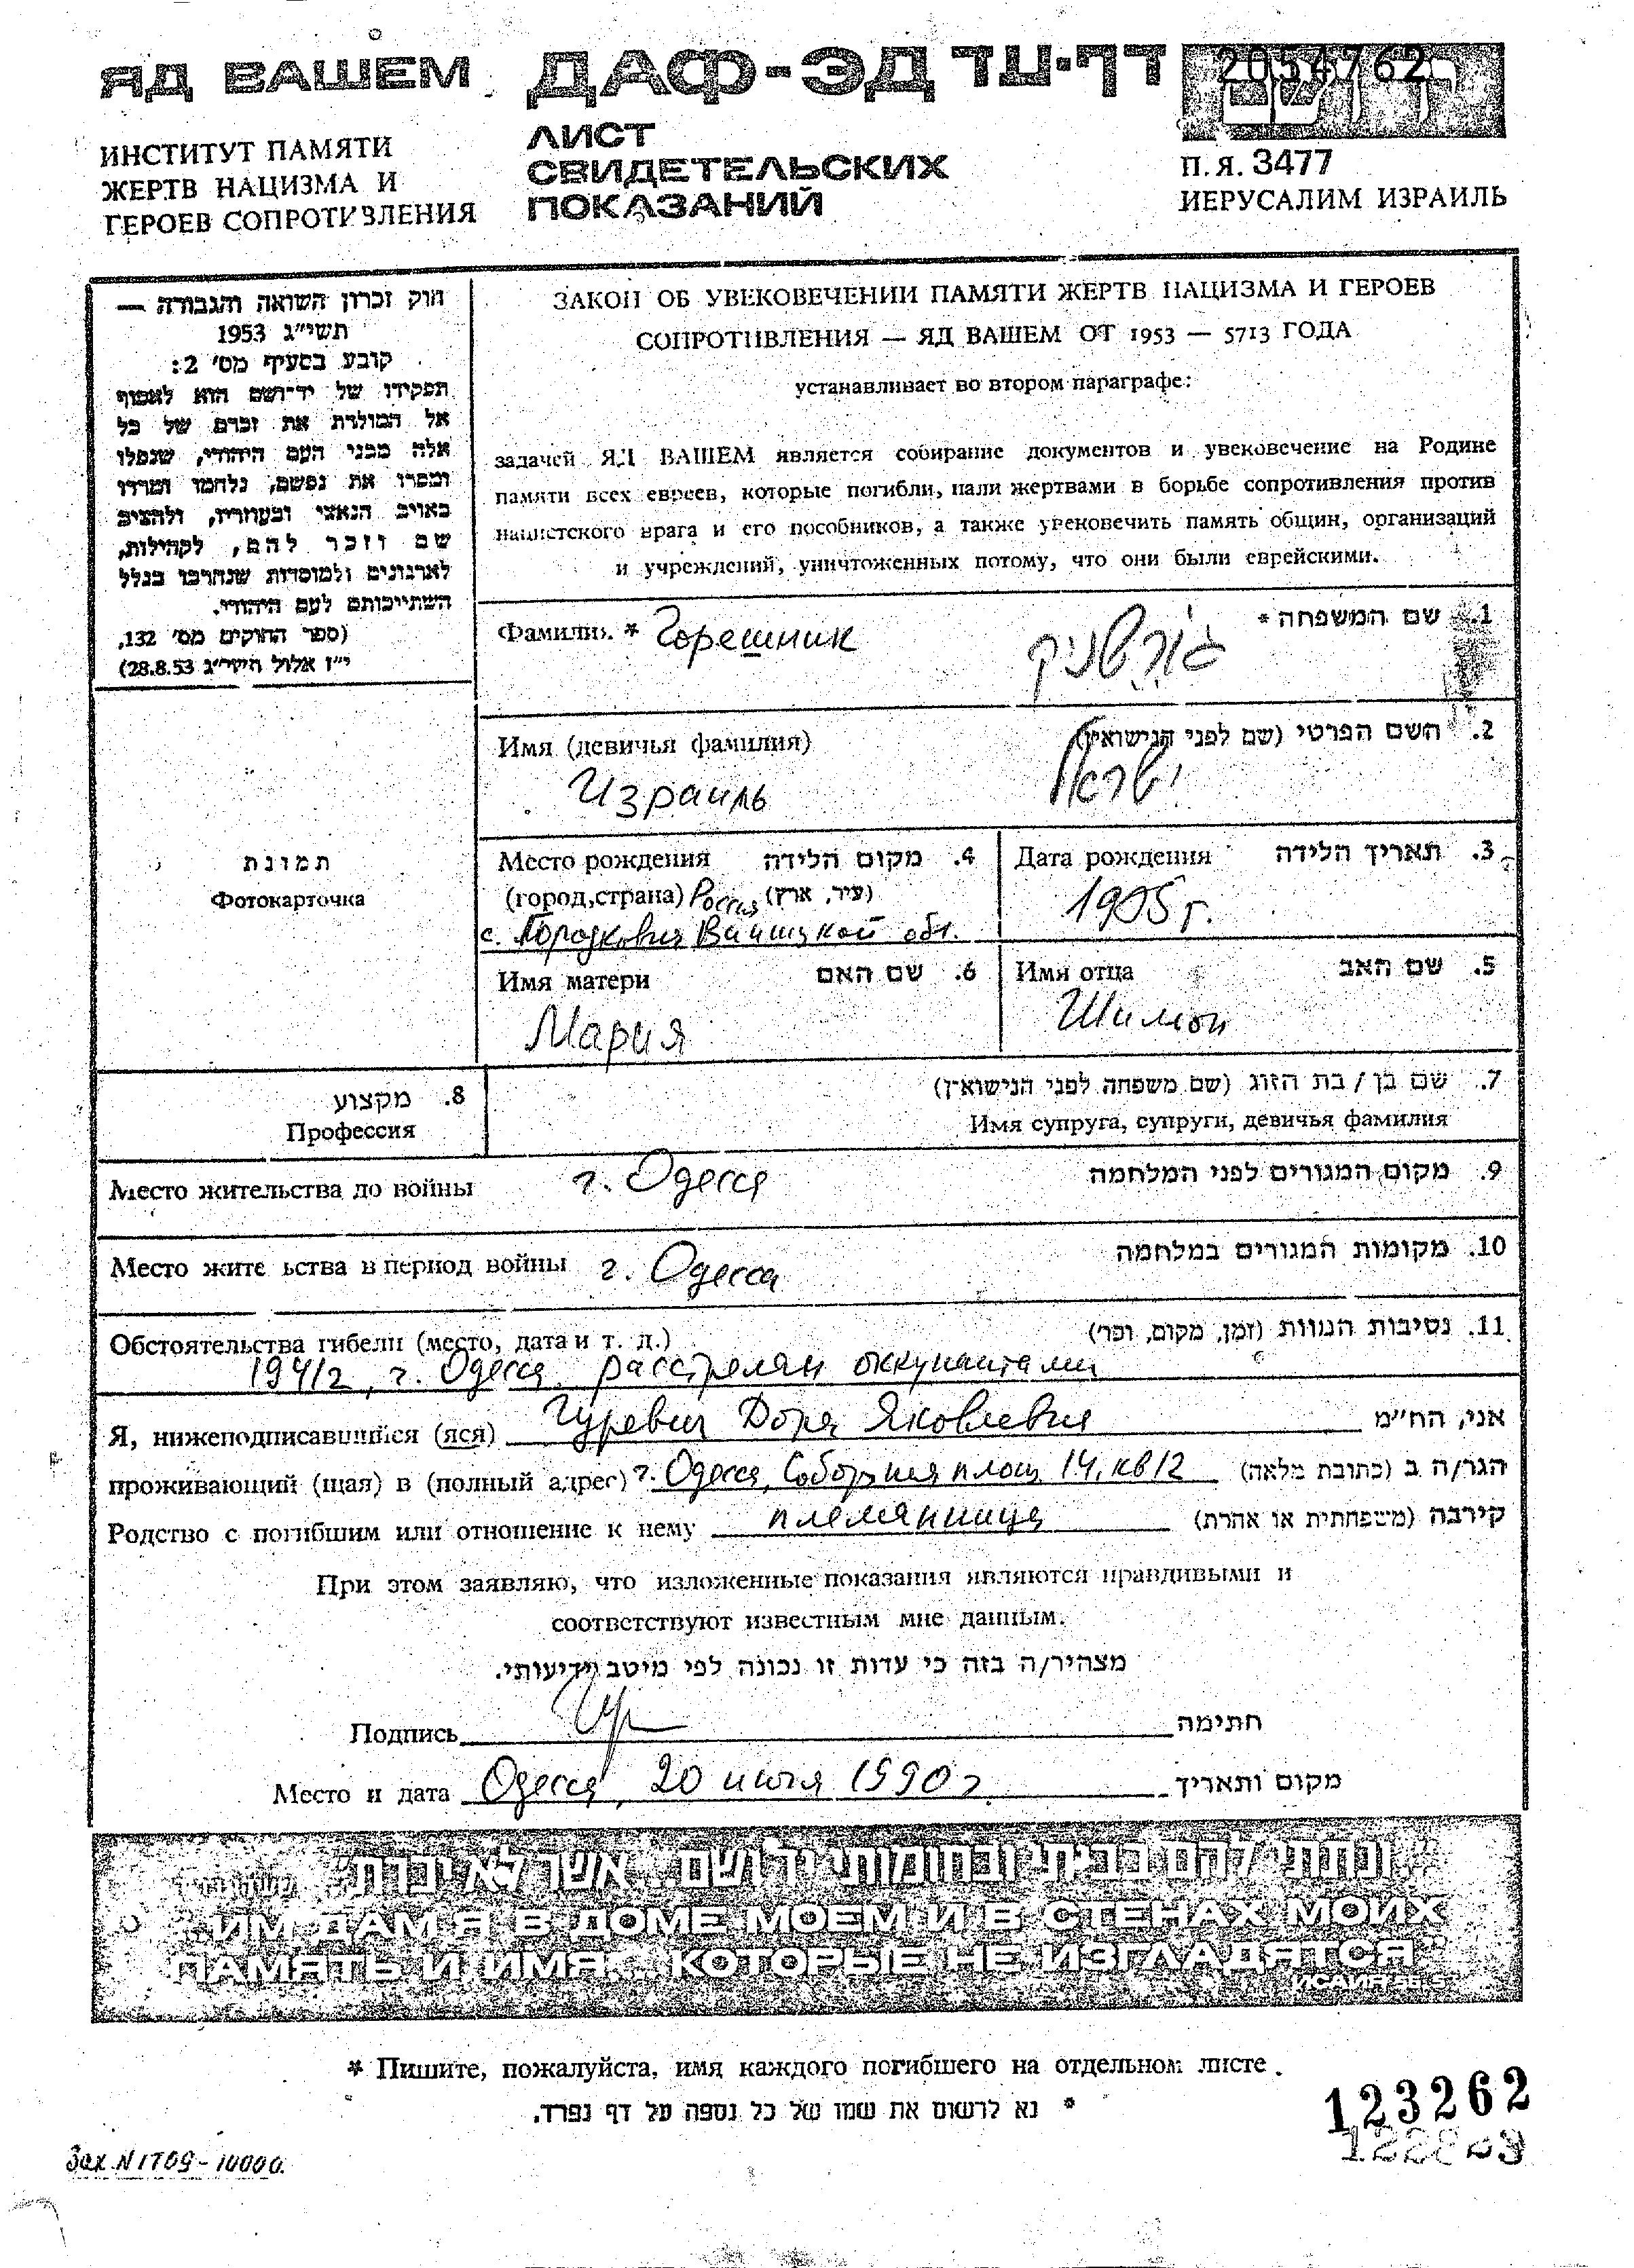 ЯД ВАШЕМ
ИНСТИТУТ ПАМЯТИ
ЖЕРТВ НАЦИЗМА И
ГЕРОЕВ СОПРОТИВЛЕНИЯ
ДАФ-ЭД דף-עד
ЛИСТ
СВИДЕТЕЛЬСКИХ
ПОКАЗАНИЙ
2054762
П.Я. 3477
ИЕРУСАЛИМ ИЗРАИЛЬ
חוק זכרון השואה והגבורה —
תשי״ג 1953
קובע בסעיף מס׳ 2:
תפקידו של יד־ושם הוא לאסוף
אל המולדת את זכרם של כל
אלה מבני העם היהודי, שנפלו
ומסרו את נפשם, נלחמו ומרדו
באויב הנאצי ובעוזריו, ולהציב
שם וזכר להם, לקהילות,
לארגונים ולמוסדות שנחרבו בגלל
השתייכותם לעם היהודי.
(ספר החוקים מס׳ 132,
י״ז אלול תשי״ג 28.8.53)
ЗАКОН ОБ УВЕКОВЕЧЕНИИ ПАМЯТИ ЖЕРТВ НАЦИЗМА И ГЕРОЕВ
СОПРОТИВЛЕНИЯ — ЯД ВАШЕМ ОТ 1953 — 5713 ГОДА
устанавливает во втором параграфе:
задачей ЯД ВАШЕМ является собирание документов и увековечение на Родине
памяти всех евреев, которые погибли, пали жертвами в борьбе сопротивления против
нацистского врага и его пособников, а также увековечить память общин, организаций
и учреждений, уничтоженных потому, что они были еврейскими.
Фамилия * Горешник גורשניק 1. שם המשפחה *
Имя (девичья фамилия) 2. השם הפרטי (שם לפני הנישואין)
Израиль ישראל
תמונת
Фотокарточка
Место рождения 4. מקום הלידה
(город,страна) Россия (עיר, ארץ)
с. Винницкой обл.
Дата рождения 3. תאריך הלידה
1905 г.
Имя матери 6. שם האם
Мария
Имя отца 5. שם האב
Шимон
8. מקצוע
Профессия
7. שם בן / בת הזוג (שם משפחה לפני הנישואין)
Имя супруга, супруги, девичья фамилия
Место жительства до войны г. Одесса 9. מקום המגורים לפני המלחמה
Место жите ьства в период войны г. Одесса 10. מקומות המגורים במלחמה
Обстоятельства гибели (место, дата и т. д.) 11. נסיבות המוות (זמן, מקום, וכו׳)
1941г, г. Одесса расстрелян оккупантами
Я, нижеподписавшийся (яся) Гуревич Дора Яковлевна אני, הח״מ
проживающий (щая) в (полный адрес) г. Одесса, Соборная площ 14, кв 12 הגר/ה ב (כתובת מלאה)
Родство с погибшим или отношение к нему племянница קירבה (משפחתית או אחרת)
При этом заявляю, что изложенные показания являются правдивыми и
соответствуют известным мне данным.
מצהיר/ה בזה כי עדות זו נכונה לפי מיטב ידיעותי.
Подпись חתימה
Место и дата Одесса, 20 июля 1990 г. מקום ותאריך
״ונתתי להם בביתי ובחומותי יד ושם... אשר לא יכרת״
"ИМ ДАМ Я В ДОМЕ МОЕМ И В СТЕНАХ МОИХ
ПАМЯТЬ И ИМЯ... КОТОРЫЕ НЕ ИЗГЛАДЯТСЯ"
ИСАИЯ 56, 5
* Пишите, пожалуйста, имя каждого погибшего на отдельном листе.
* נא לרשום את שמו של כל נספה על דף נפרד.
123262
Зак. N 1709-10000.